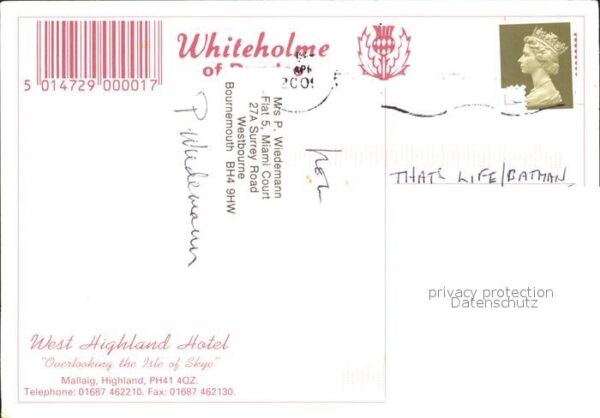 5 014729 000017
Whiteholme
of
2001
Mrs P. Wiedemann
Flat 5, Miami Court
27A Surrey Road
Westbourne
Bournemouth BH4 9HW
P Wiedemann
THATS LIFE/BATMAN
privacy protection
Datenschutz
West Highland Hotel
"Overlooking the Isle of Skye"
Mallaig, Highland, PH41 4QZ.
Telephone: 01687 462210. Fax: 01687 462130.